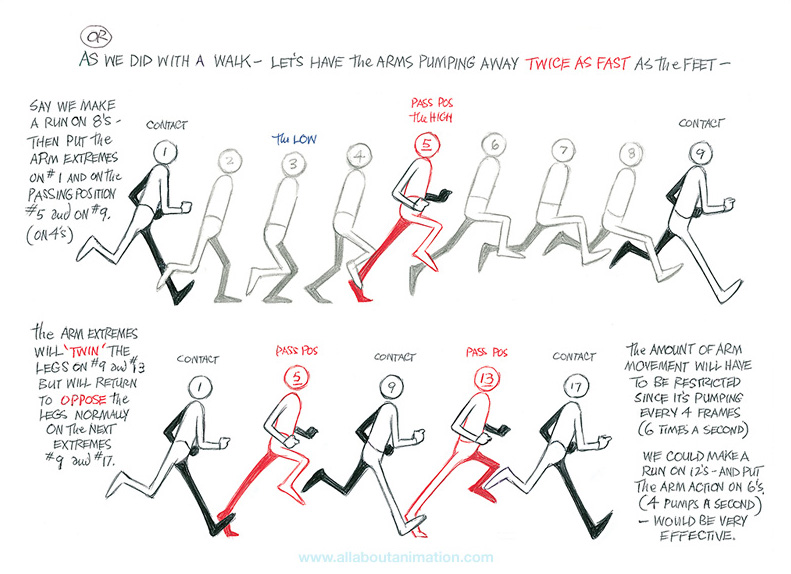 OR
AS WE DID WITH A WALK – LET'S HAVE the ARMS PUMPING AWAY TWICE AS FAST AS the FEET –
SAY WE MAKE
A RUN ON 8's –
THEN PUT the
ARM EXTREMES
ON #1 AND ON the
PASSING POSITION
#5 and ON #9.
(ON 4's)
CONTACT
the LOW
PASS POS
the HIGH
CONTACT
1
2
3
4
5
6
7
8
9
the ARM EXTREMES
WILL 'TWIN' THE
LEGS ON #9 and #13
BUT WILL RETURN
TO OPPOSE the
LEGS NORMALLY
ON the NEXT
EXTREMES
#9 and #17.
CONTACT
PASS POS
CONTACT
PASS POS
CONTACT
1
5
9
13
17
the AMOUNT OF ARM
MOVEMENT WILL HAVE
TO BE RESTRICTED
SINCE IT'S PUMPING
EVERY 4 FRAMES
(6 TIMES A SECOND)
WE COULD MAKE A
RUN ON 12's – AND PUT
THE ARM ACTION ON 6's.
(4 PUMPS A SECOND)
– WOULD BE VERY
EFFECTIVE.
www.allaboutanimation.com